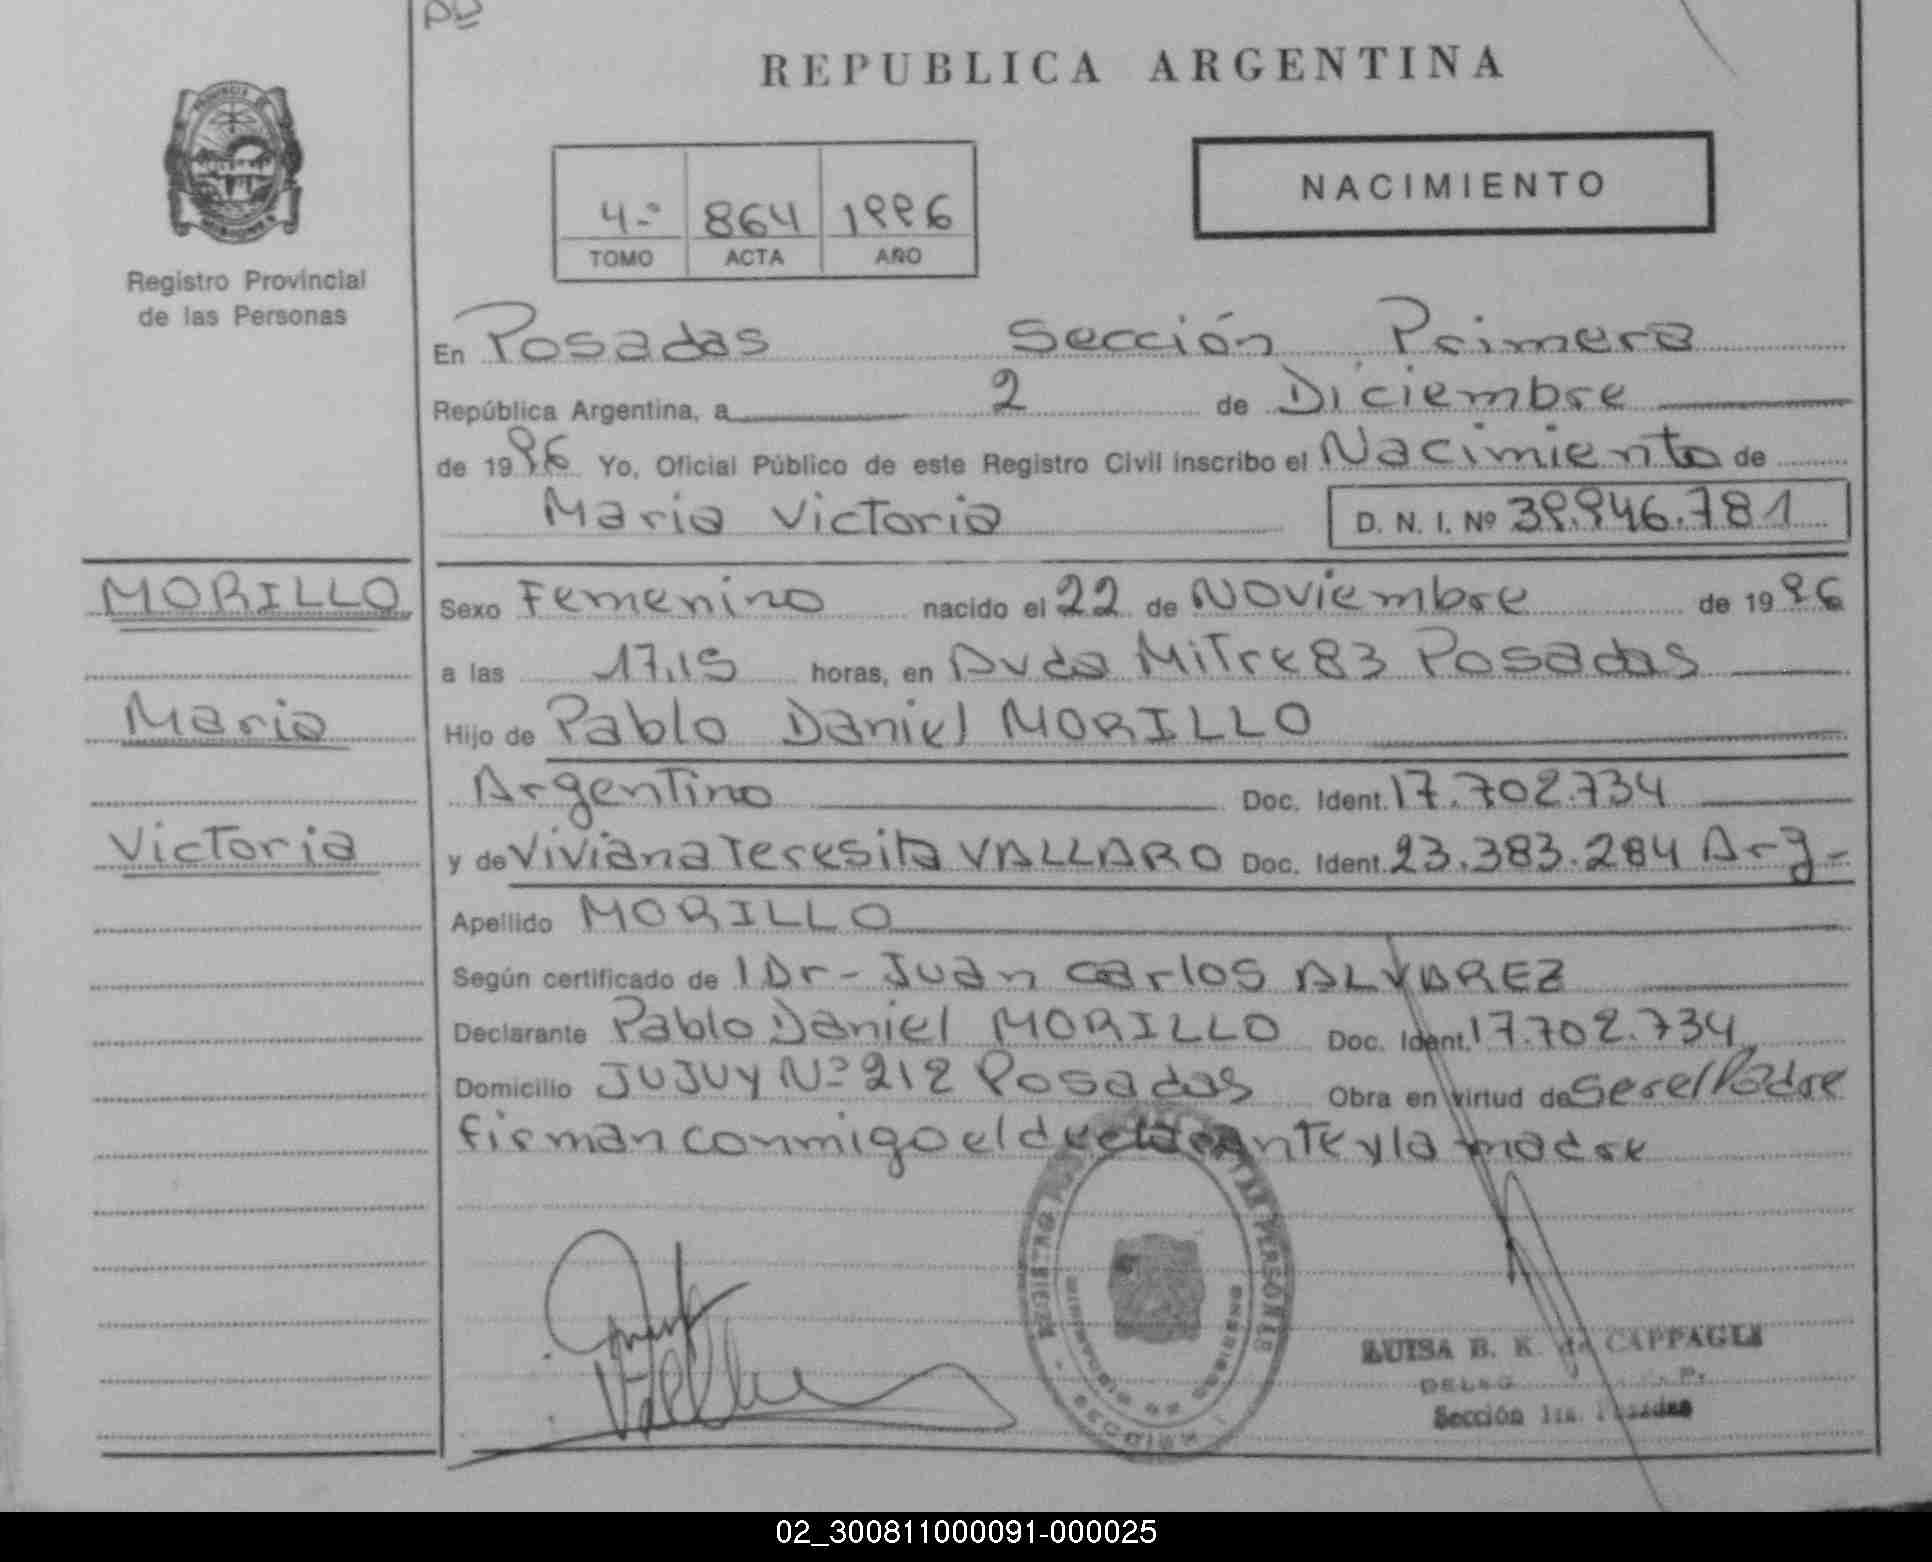 REPUBLICA ARGENTINA
Registro Provincial
de las Personas
4-° 864 1996
TOMO ACTA AÑO
NACIMIENTO
En Posadas Sección Primera
República Argentina, a 2 de Diciembre
de 1996 Yo, Oficial Público de este Registro Civil inscribo el Nacimiento de
Maria Victoria D. N. I. Nº 39.946.781
MORILLO
Maria
Victoria
Sexo Femenino nacido el 22 de Noviembre de 1996
a las 17,15 horas, en Avda Mitre 83 Posadas
Hijo de Pablo Daniel MORILLO
Argentino Doc. Ident. 17.702.734
y de Viviana Teresita VALLARO Doc. Ident. 23.383.284 Arg-
Apellido MORILLO
Según certificado de 1 Dr- Juan Carlos ALVAREZ
Declarante Pablo Daniel MORILLO Doc. Ident. 17.702.734
Domicilio JUJUY Nº 212 Posadas Obra en virtud de ser el Padre
firman conmigo el declarante y la madre
LUISA B. K. de CAPPAGLI
Sección 1ra. Posadas
02_300811000091-000025